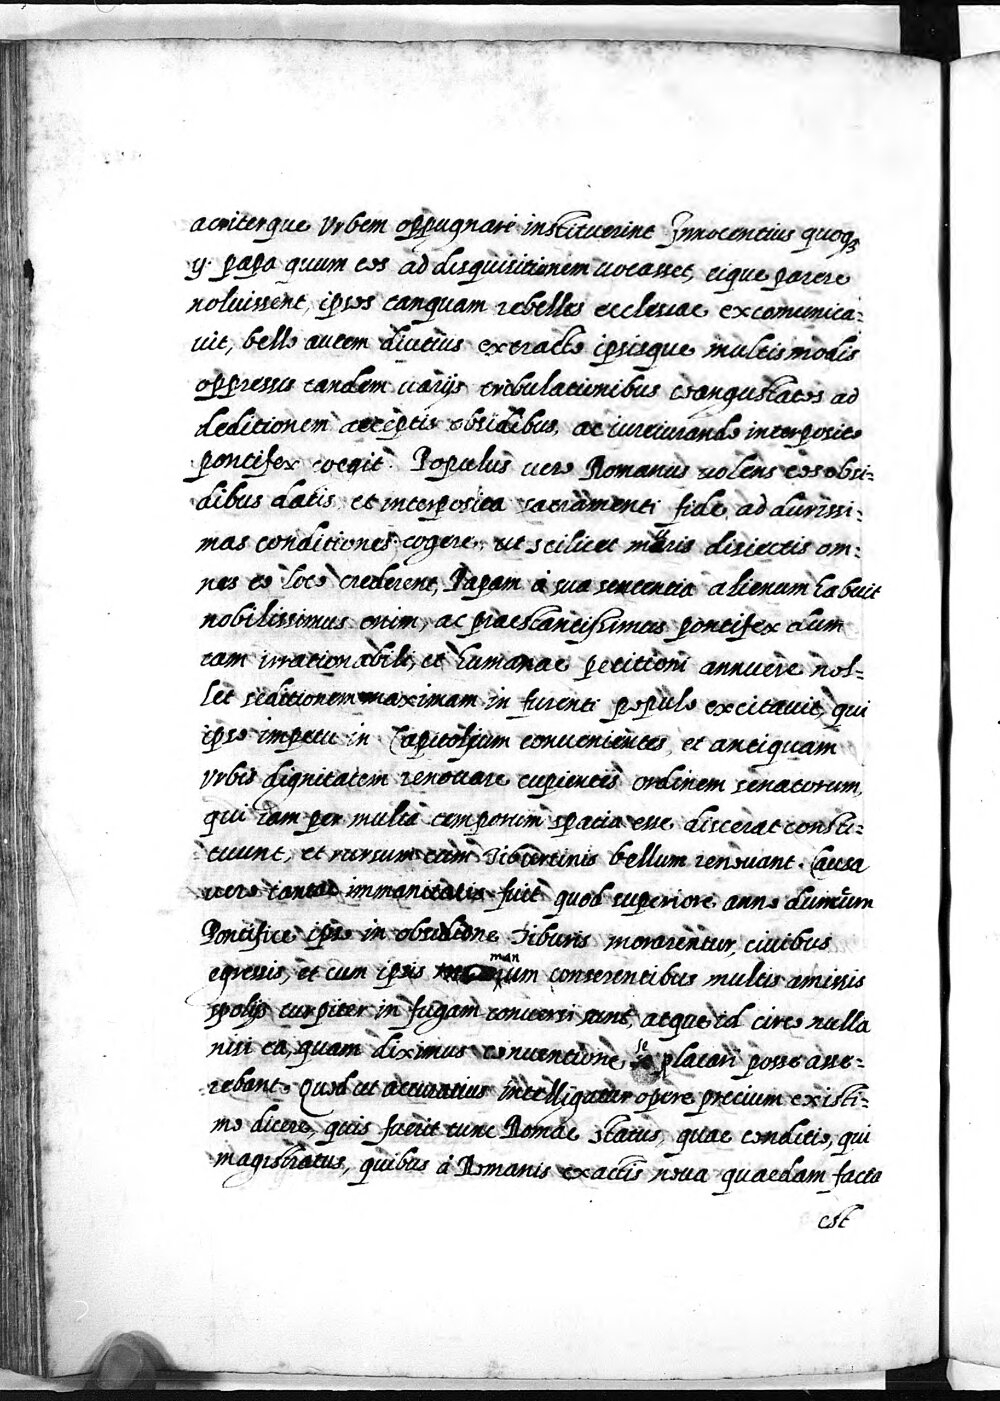 acriterque Vrbem oppugnare instituerint Innocentius quoq;
ij. papa quum eos ad disquisitionem uocasset, eique parere
noluissent, ipsos tanquam rebelles ecclesiae excomunica=
uit, bello autem diutius extracto ipsisque multis modis
oppressis tandem uarijs tribulationibus coangustatos ad
deditionem acceptis obsidibus, ac iureiurando interposito
pontifex coegit. Populus uero Romanus uolens eos obsi=
dibus datis et interposita sacramenti fide, ad durissi=
mas conditiones cogere, ut scilicet muris disiectis om=
nes eo loco crederent, Papam à sua sententia alienum habuit
nobilissimus enim, ac praestantissimus pontifex dum
tam irrationabili, et humanae petitioni annuere nol=
let seditionem maximam in furenti populo excitauit, qui
ipso impetu in Capitolium conuenientes, et antiquam
Vrbis dignitatem renouare cupientes ordinem senatorum,
qui iam per multa temporum spacia esse discerat consti=
tuunt, et rursum cum Tiburtinis bellum renouant. Causa
uero tantae immanitatis fuit quod superiore anno dum cum
Pontifice ipso in obsidione Tiburis morarentur, ciuibus
egressis, et cum ipsis manum conserentibus multis amissis
spolijs turpiter in fugam conuersi sunt, atque id circo nulla
nisi ea, quam diximus conuentione se placari posse asse=
rebant. Quod ut accuratius intelligatur opere precium existi=
mo dicere, quis fuerit tunc Romae status, quae conditio, qui
magistratus, quibus à Romanis exactis noua quaedam facta
est